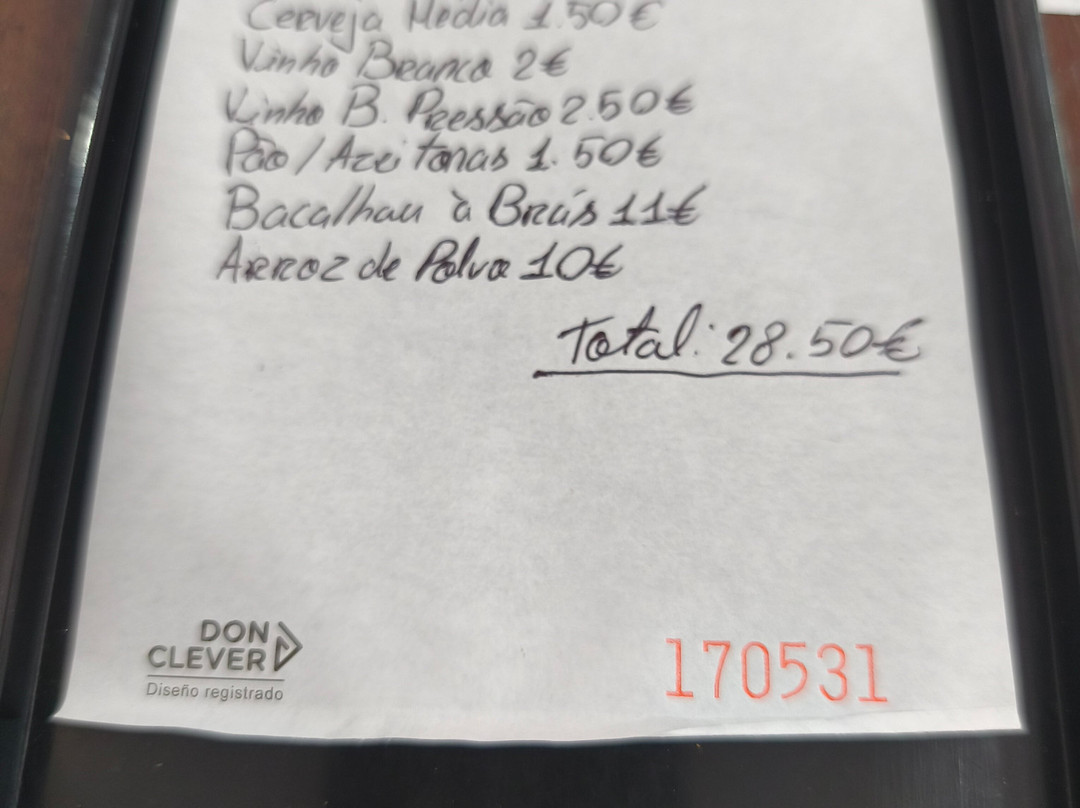 Cerveja Media 1.50€
Vinho Branco 2€
Vinho B. Pressão 2.50€
Pão/Azeitonas 1.50€
Bacalhau à Brás 11€
Arroz de Polvo 10€
Total: 28.50€
DON
CLEVER
Diseño registrado
170531